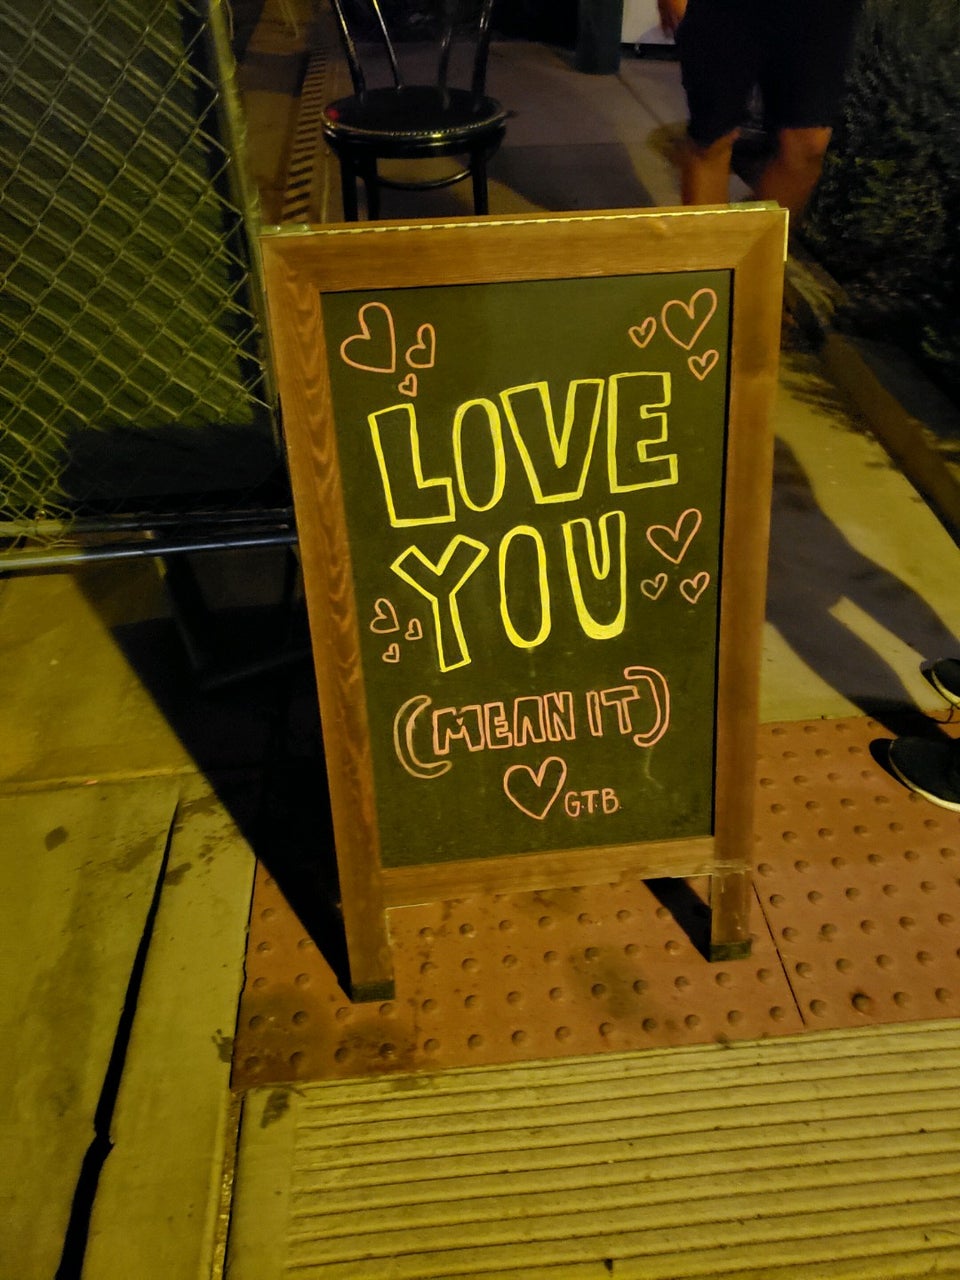 LOVE
YOU
(MEAN IT)
G.T.B.